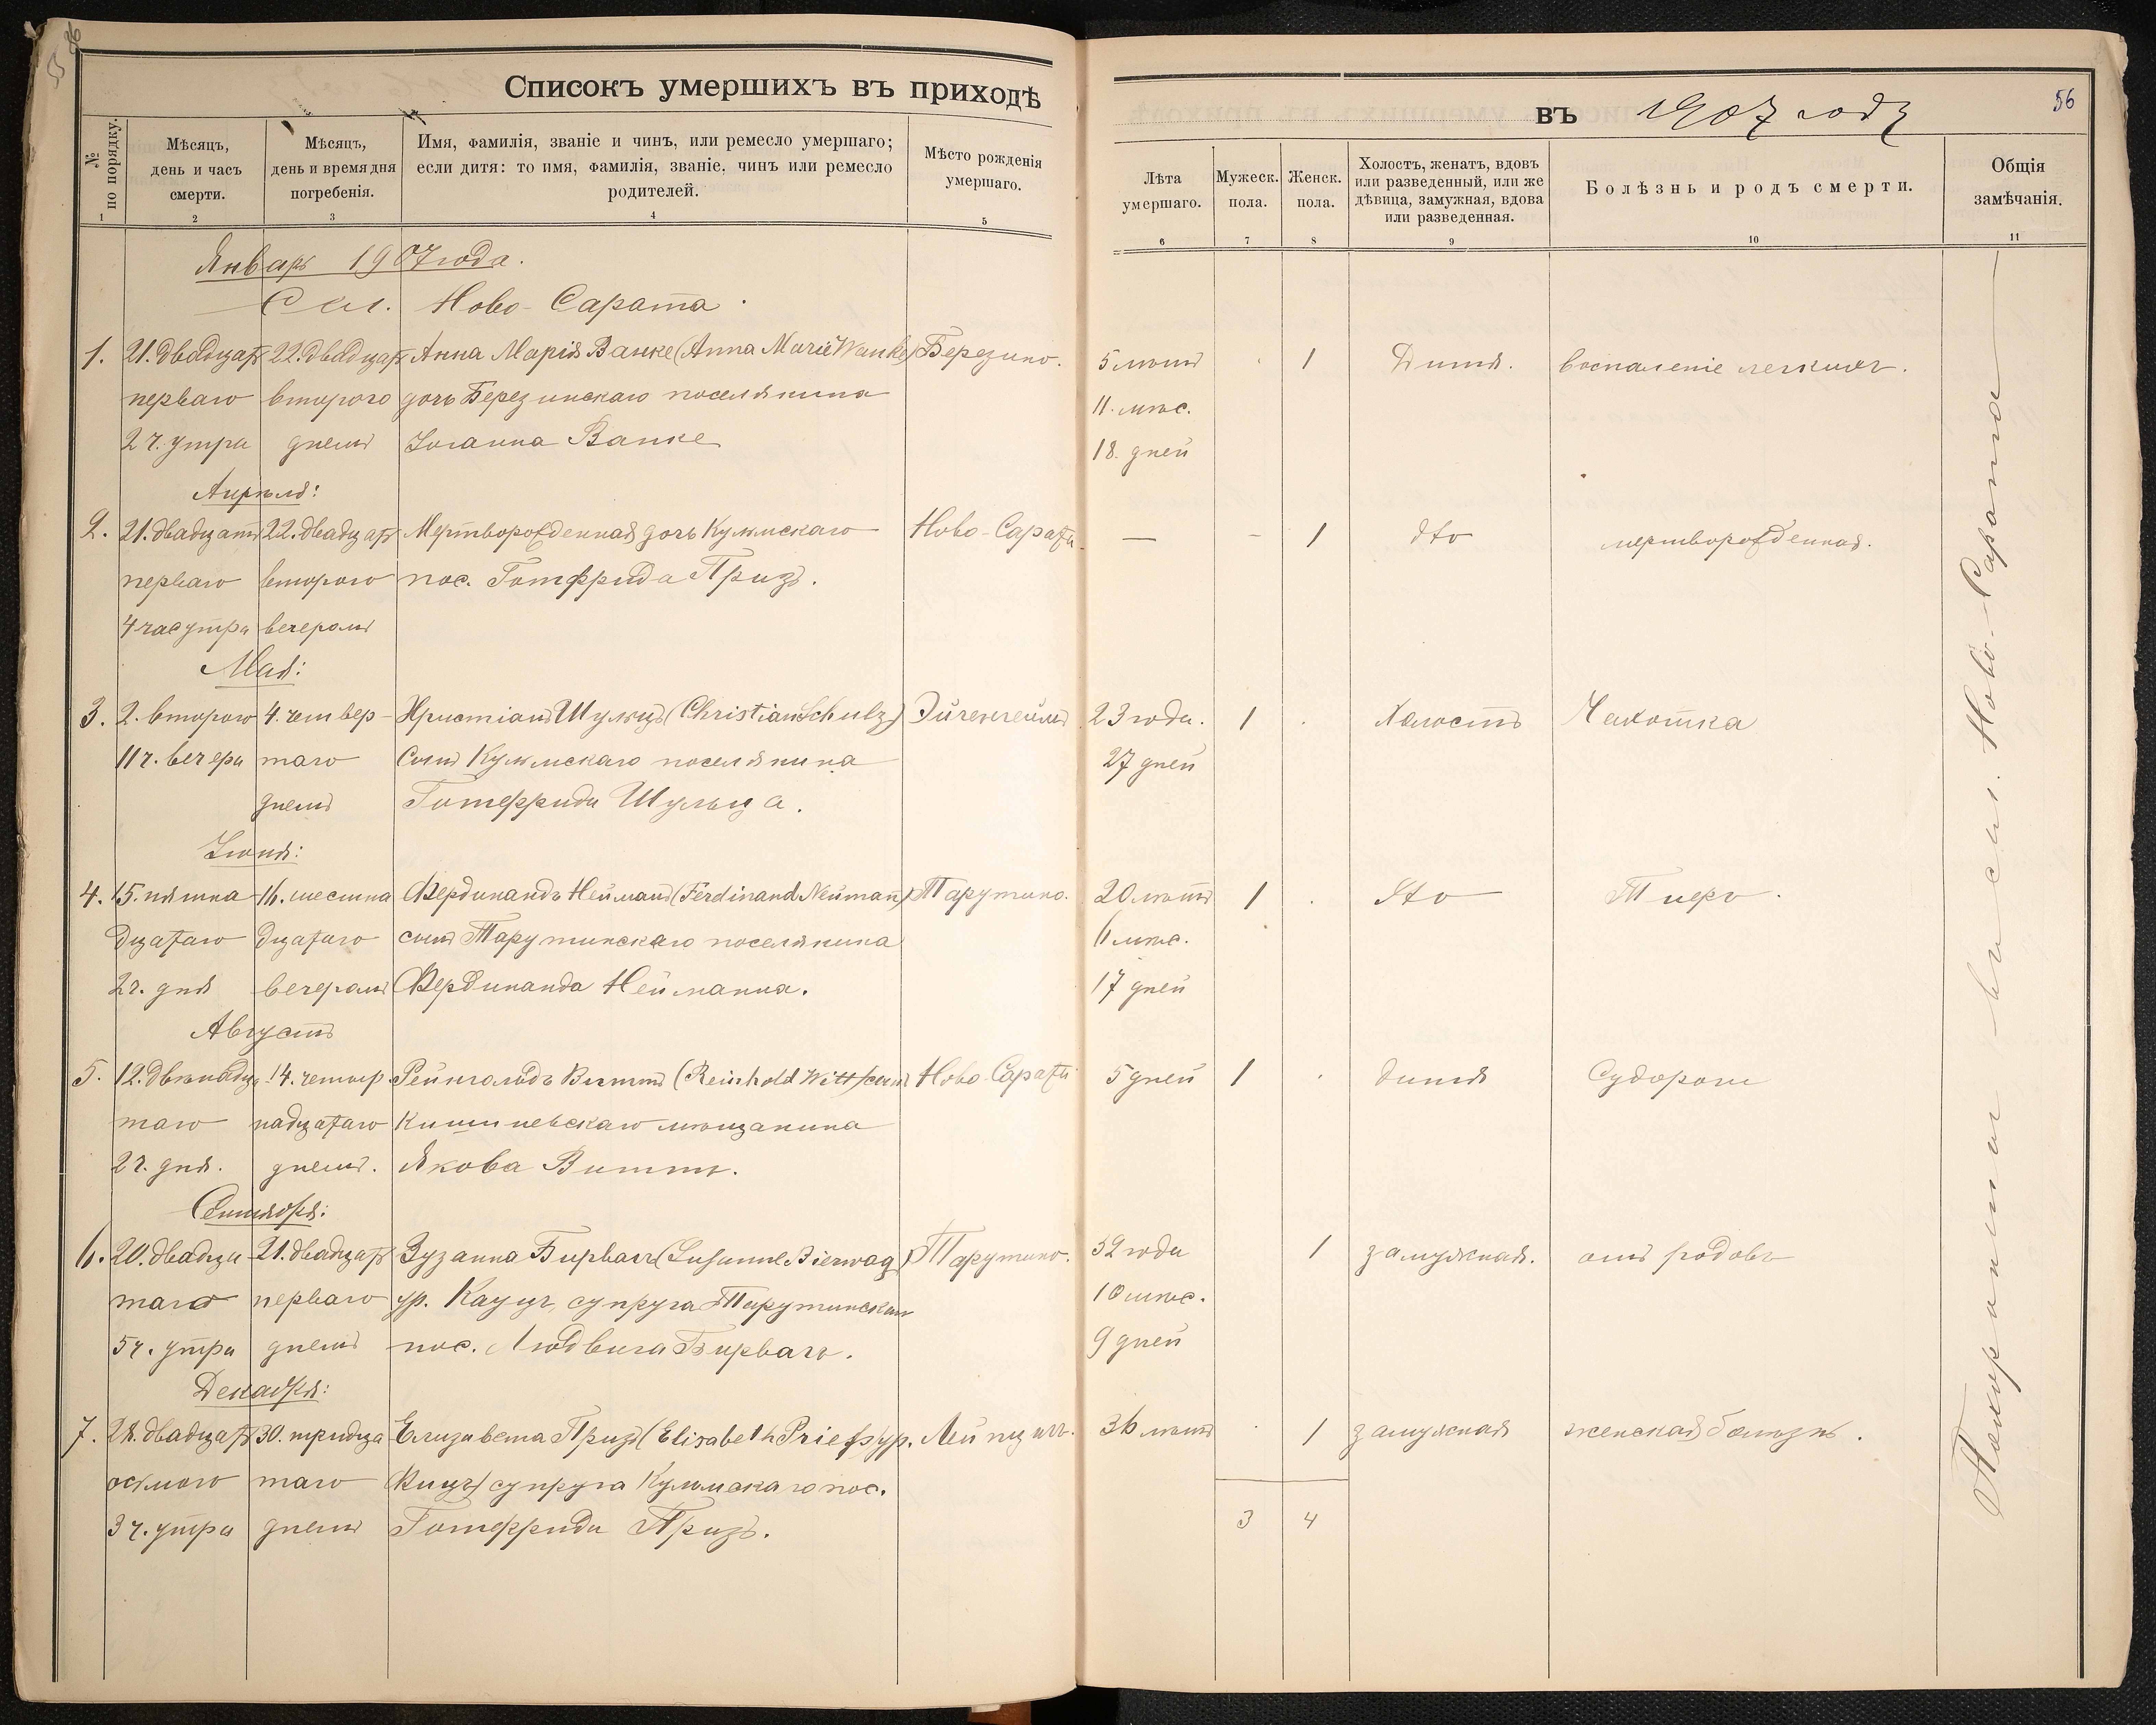 56
Списокъ умершихъ въ приходѣ
въ 1907 году
№ по порядку.
Мѣсяцъ, день и часъ смерти.
Мѣсяцъ, день и время дня погребенія.
Имя, фамилія, званіе и чинъ, или ремесло умершаго; если дитя: то имя, фамилія, званіе, чинъ или ремесло родителей.
Мѣсто рожденія умершаго.
Лѣта умершаго.
Мужеск. пола.
Женск. пола.
Холостъ, женатъ, вдовъ или разведенный, или же дѣвица, замужная, вдова или разведенная.
Болѣзнь и родъ смерти.
Общія замѣчанія.
1 2 3 4 5 6 7 8 9 10 11
Январь 1907 года.
Сел. Ново-Сарата.
1. 21. двадцать 22. двадцать Анна Марія Ванке (Anna Marie Wanke) Березино. 5 лѣтъ 1 Дитя. воспаленіе легкихъ.
перваго второго дочь Березинскаго поселянина 11. мѣс.
2 ч. утра днемъ Іоганна Ванке 18. дней
Апрѣля:
2. 21. двадцать 22. двадцать Мертворожденная дочь Кульмскаго Ново-Сарата — - 1 dto мертворожденная.
перваго второго пос. Готфрида Призъ.
4 час утра вечеромъ
Мая:
3. 2. второго 4. четвер- Христіанъ Шульцъ (Christian Schulz) Эйгенгеймъ 23 года. 1 Холостъ Чахотка
11 ч. вечера таго сынъ Кульмскаго поселянина 27 дней
днемъ Готфрида Шульца.
Іюня:
4. 15. пятна- 16. шестна Фердинандъ Нейманъ (Ferdinand Neumann) Тарутино. 20 лѣтъ 1 dto Тифъ.
дцатаго дцатаго сынъ Тарутинскаго поселянина 6 мѣс.
2 ч. дня вечеромъ Фердинанда Нейманна. 17 дней
Августъ
5. 12. двѣнадца 14. четыр- Рейнгольдъ Виттъ (Reinhold Witt) сынъ Ново-Сарата 5 дней 1 дитя Судороги
таго надцатаго Кишиневскаго мѣщанина
2 ч. дня. днемъ. Якова Виттъ.
Сентября:
6. 20. двадца- 21. двадцать Зузанна Бирвагъ (Susanne Bierwag) Тарутино. 32 года 1 замужная. отъ родовъ
таго перваго ур. Кауцъ, супруга Тарутинскаго 10 мѣс.
5 ч. утра днемъ пос. Людвига Бирвагъ. 9 дней
Декабря:
7. 28. двадцать 30. тридца Елизавета Призъ (Elisabeth Prieß ур. Лейпцигъ. 36 лѣтъ 1 замужная женская болѣзнь.
осьмого таго супруга Кульмскаго пос.
3 ч. утра днемъ Готфрида Призъ.
3 4
Похоронены въ сел. Ново-Сарата